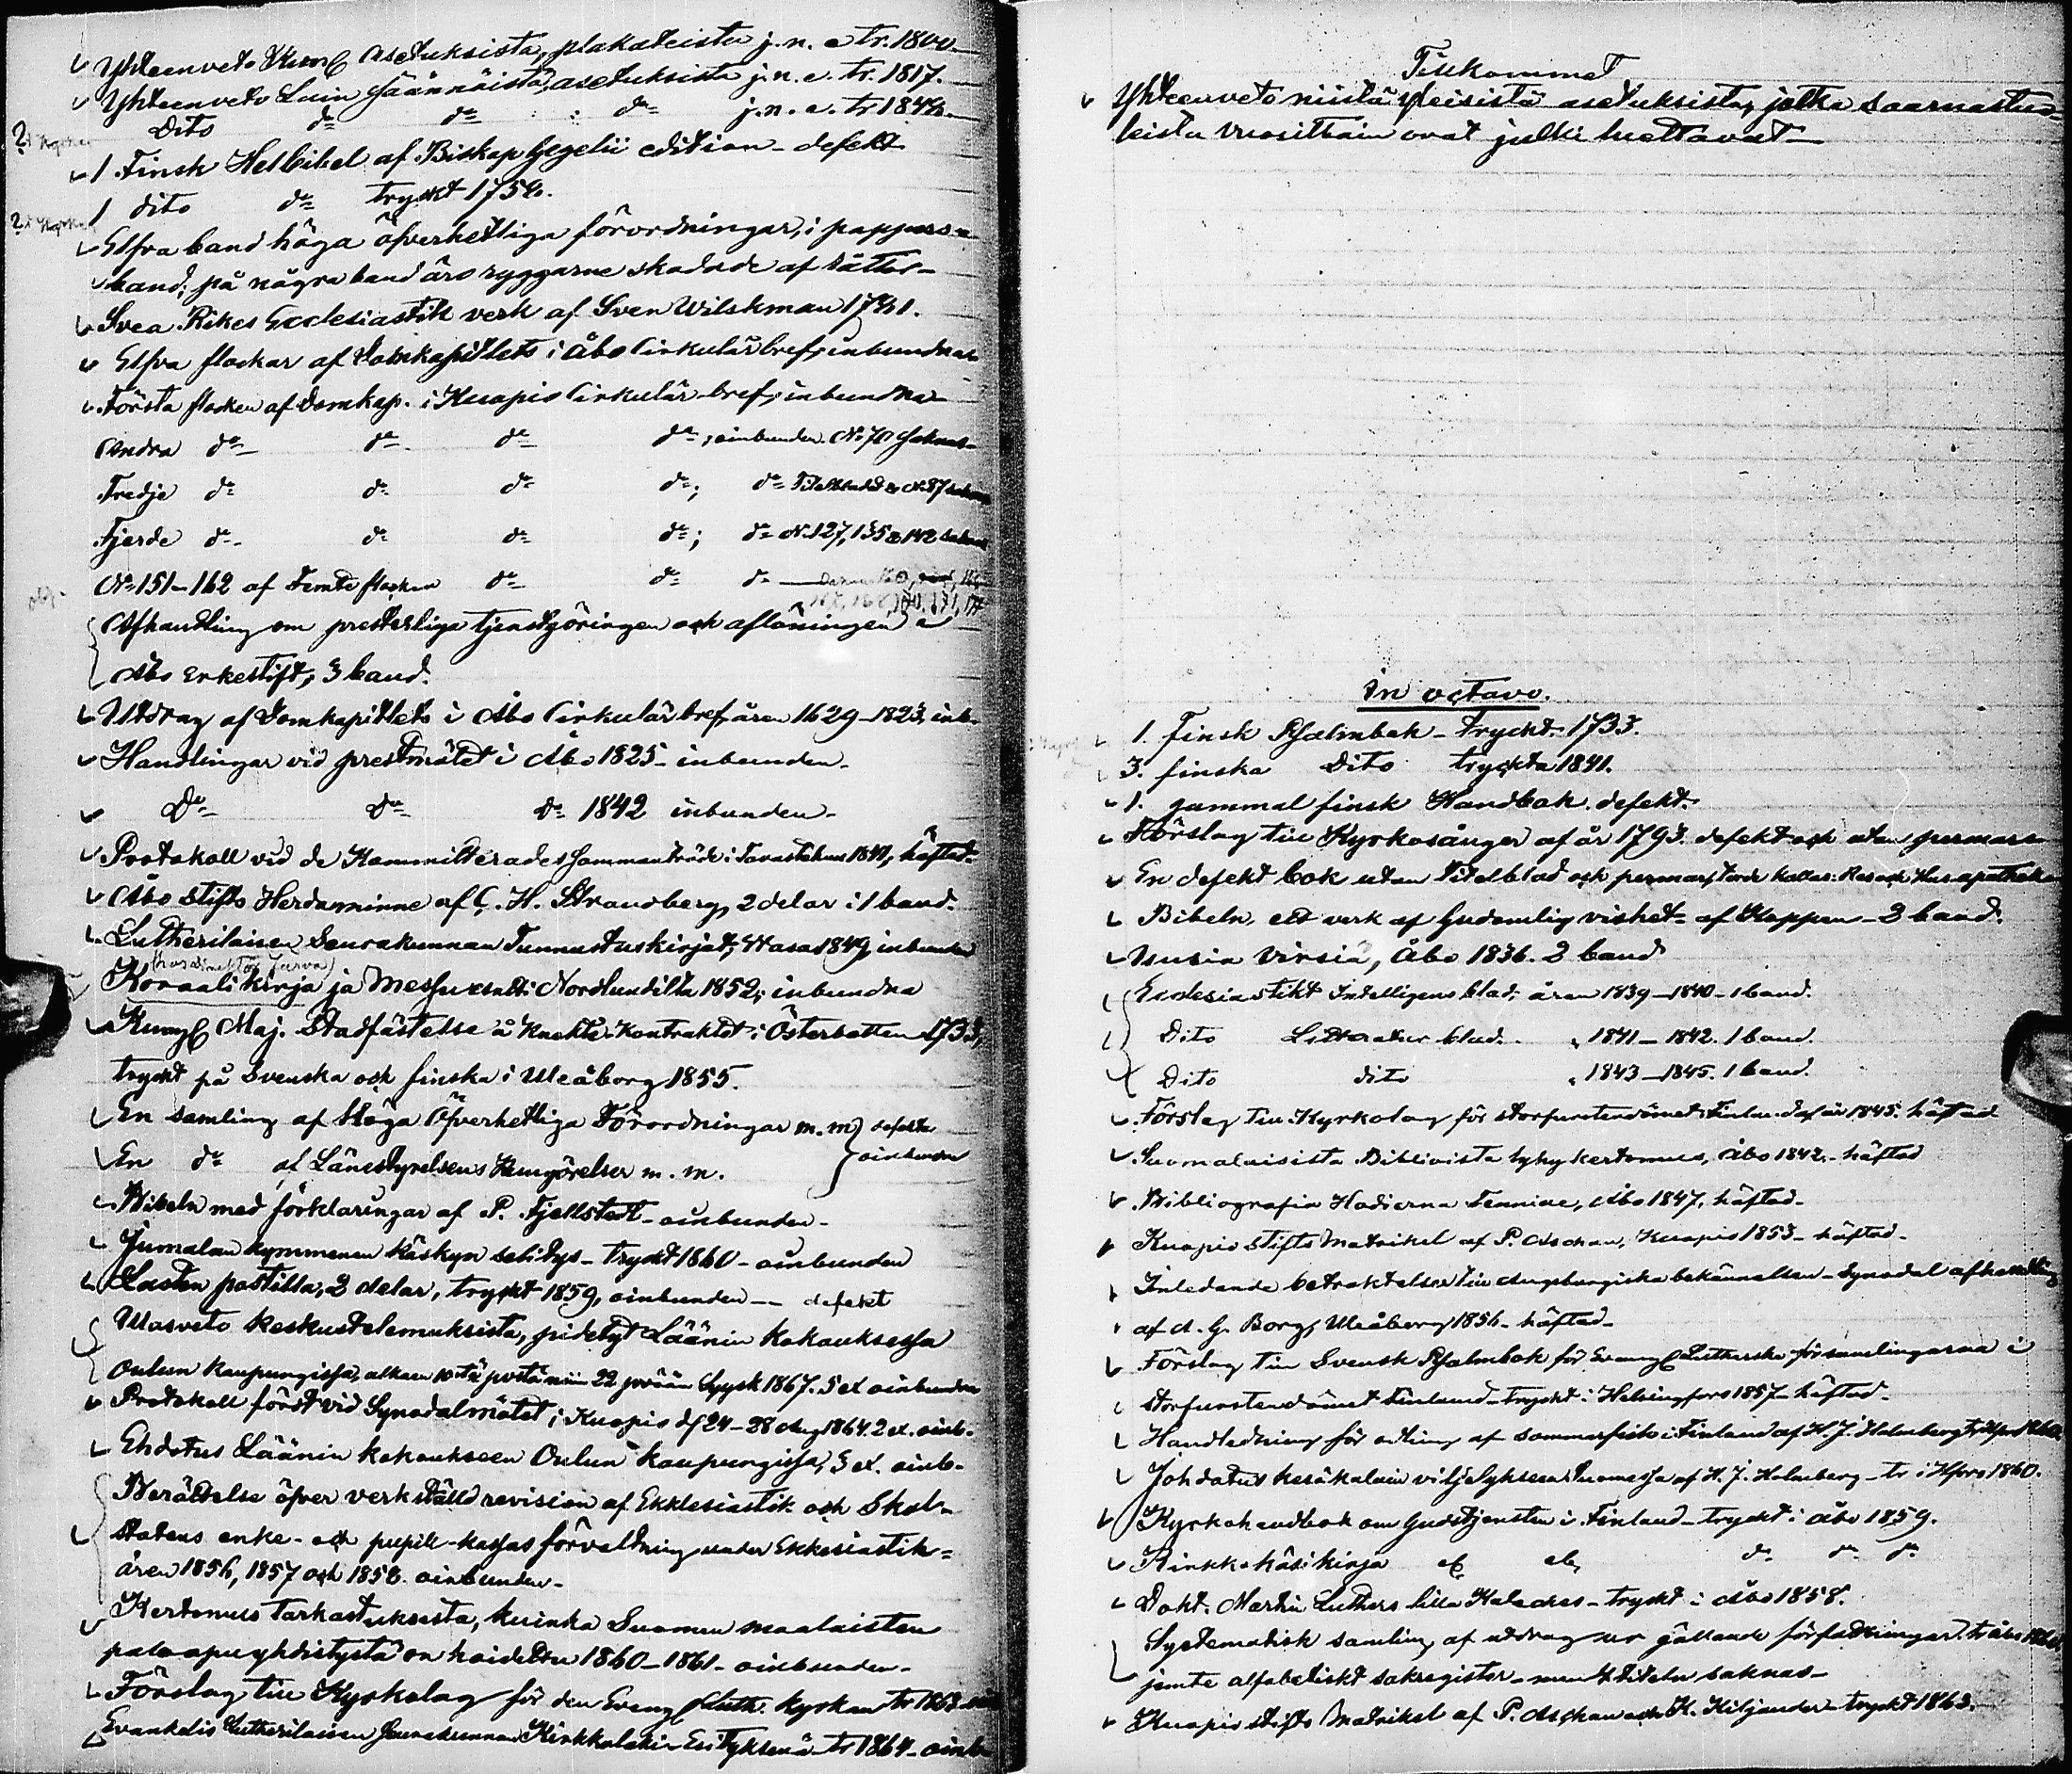 Yhteenveto Kuni. Asetuksista, plakateista j.n.e tr. 1800
Yhteenveto Lain säännöistä, asetuksista j.n.e. tr. 1817.
Dito do do do j.n.e. tr 1844.
1 Finsk Helbibel af Biskop Gezelii edition - defekt
1 dito do tryckt 1758.
Elfva band höga öfverhetliga förordningar, i pappers-
band; på några band äro ryggarne skadade af råttor-
Svea Rikes Ecclesiastik verk af Sven Wilskman 1781.
Elfva flockar af Domkapitlets i Åbo Cirkulärbref, inbundna
Första flocken af Domkap. i Kuopio Cirkulär bref, inbundna
Andra do do do do; oinbunden No 70 saknas-
Tredje do do do do; do Titelbladet & No 87 saknas
Fjerde do do do do; do No 127, 135 & 142 saknas
No 151-162 af Femte flocken do do do
Afhandling om presterliga tjenstgöringen och aflöningen i
Åbo Erkestift, 3 band.
Utdrag af Domkapitlets i Åbo Cirkulärbref, åren 1629-1823, inb.
Handlingar vid prestmötet i Åbo 1825 - inbunden.
Do do do 1842 inbunden-
Protokoll vid de Kommitterades sammanträde i Tavastehus 1841, häftad-
Åbo Stifts Herdaminne af C. H. Strandberg, 2 delar i 1 band.
Lutherilaisen Seurakunnan Tunnustuskirjat, Wasa 1849, inbunden
Koraalikirja ja Messu Nordlundilta 1852; inbundna
Kungl Maj. Stadfästelse å Knekte-Kontraktet i Österbotten 1733,
tryckt på Svenska och finska i Uleåborg 1855.
En samling af Höga Öfverhetliga Förordningar m.m. defekta
En do af Länestyrelsens Kungörelser m. m. oinbunden
Bibeln med förklaringar af P. Fjellstedt - oinbunden-
Jumalan kymmenen käskyn selitys - tryckt 1860 - oinbunden
Lasten postilla, 2 delar, tryckt 1859, oinbunden - defekt
Ulosveto keskustelemuksista, pidetyt Läänin kokouksessa
Oulun kaupungissa, alkaen 10:tä päivästä niin 22 päivään Syysk 1867. 5 ex oinbundna
Protokoll fördt vid Synodalmötet i Kuopio d. 24-28 Aug 1864. 2 ex. oinb.
Ehdotus Läänin kokoukseen Oulun kaupungissa, 3 ex. oinb-
Berättelse öfver verkställd revision af Ekklesiastik och Skol-
statens enke- och pupill-kassas förvaltning under Ekklesiastik-
åren 1856, 1857 och 1858. oinbunden-
Kertomus tarkastuksesta, kuinka Suomen maalaisten
paloapu yhdistystä on hoidettu 1860-1861 - oinbunden-
Förslag till Kyrkolag för den Evangl Luth. kyrkan tr 1863
Evankelis Lutherilaisen Seurakunnan Kirkkolakin Esityksenä tr 1864 - oinb
Tillkommet
Yhteenveto niistä yleisistä asetuksista, jotka saarnastuo-
leista vuosittain ovat julki luettavat-
in octavo.
1. finsk Psalmbok - tryckt 1733.
3. finska Dito tryckta 1841.
1. gammal finsk Handbok. defekt-
Förslag till Kyrkosånger af år 1793. defekt och utan permar-
En defekt bok utan Titelblad och permar, torde kallas: Rese och Husapothek
Bibeln, ett verk af Gudomlig vishet - af Kloppen - 2 band.
Uusia Virsiä, Åbo 1836. 2 band
Ecclesiastikt Intelligens blad, åren 1839-1840 - 1 band.
Dito Litteratur blad. " 1841-1842. 1 band.
Dito dito " 1843-1845. 1 band.
Förslag till Kyrkolag för storfurstendömet Finland af år 1845. häftad
Suomalaisista Biblioista lyhykertomus, Åbo 1842 - häftad
Bibliografia Hodierna Fennica, Åbo 1847, häftad-
Kuopio Stifts Matrikel af P. Aschan, Kuopio 1853 - häftad-
Inledande betraktelser till Augsburgiska bekännelsen - Synodal afhandling
af A. G. Borg, Uleåborg 1856 - häftad-
Förslag till Svensk Psalmbok för Evangl Lutherska församlingarna i
storfurstendömet Finland - tryckt i Helsingfors 1857 - häftad-
Handledning för odling af sommarfisk i Finland af H. J. Holmberg
Johdatus kesäkalain viljelykseen Suomessa af H. J. Holmberg - tr i Hfors 1860.
Kyrkohandbok om Gudstjensten i Finland - tryckt i Åbo 1859.
Kirkko-käsikirja do do do
Dokt. Martin Luthers lilla Kateches - tryckt i Åbo 1858.
Systematisk samling af utdrag ur gällande författningar
jemte alfabetiskt sakregister - men titeln saknas-
Kuopio stifts Matrikel af P. Aschan och K. Kiljander - tryckt 1863.